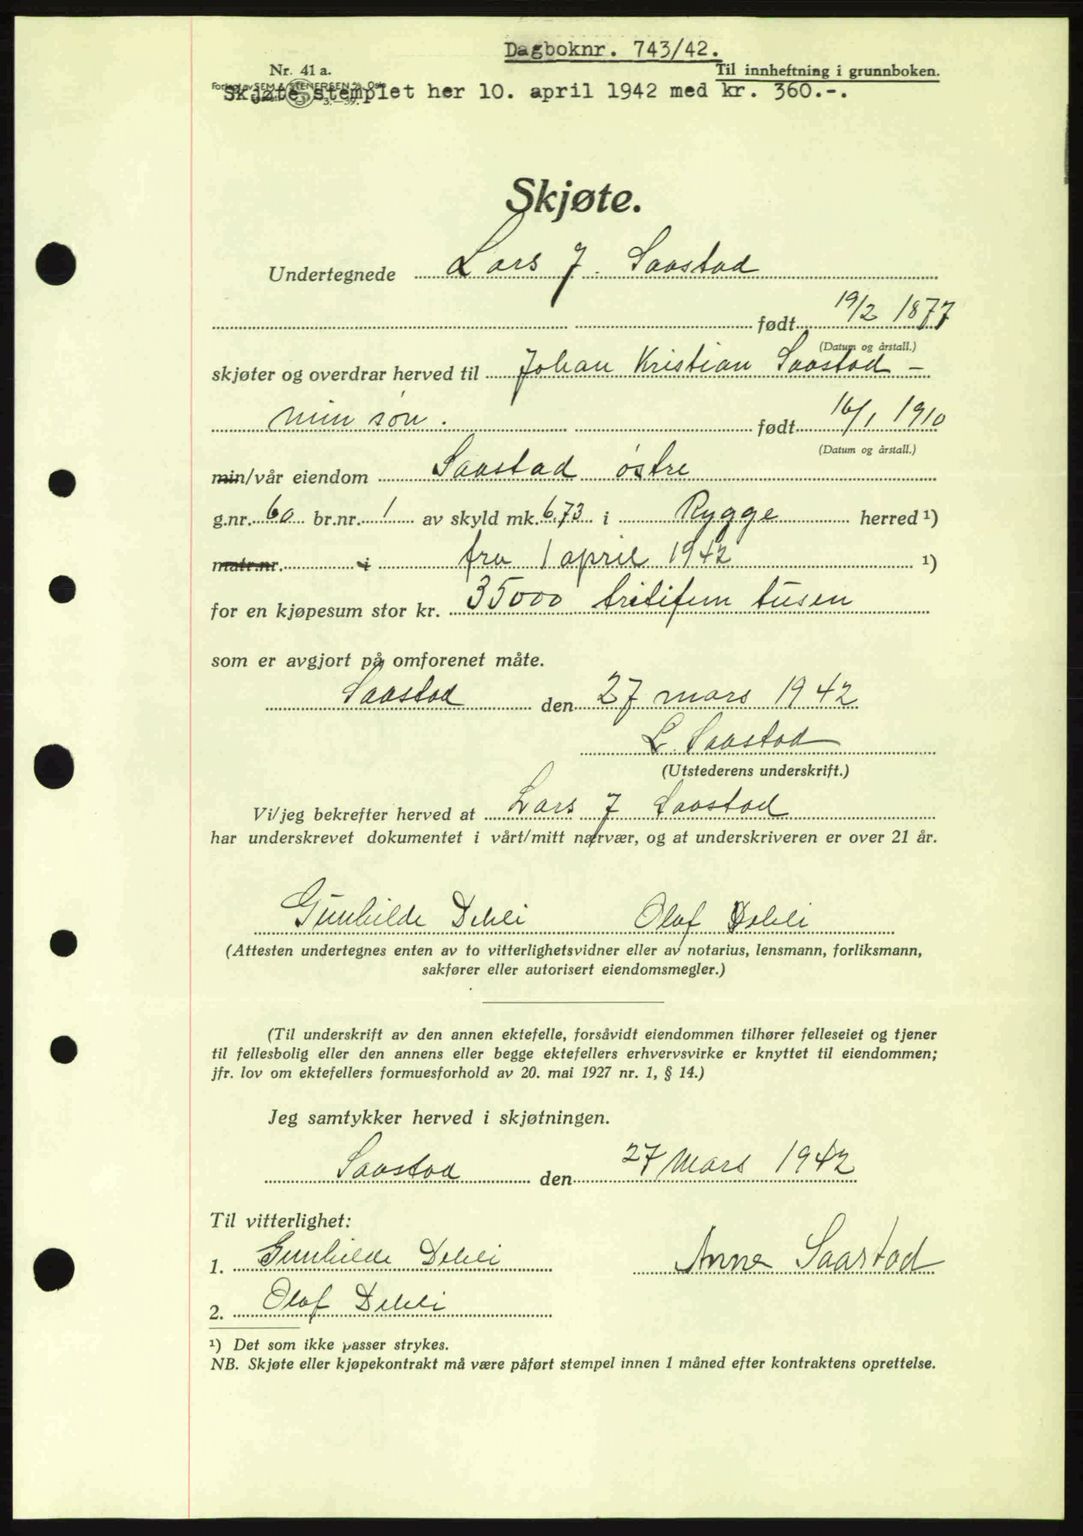 Dagboknr. 743/42.
Nr. 41 a.
Til innheftning i grunnboken.
Skjøte stemplet her 10. april 1942 med kr. 360.-.
Skjøte.
Undertegnede Lars J. Saastad
født 19/2 1877
(Datum og årstall.)
skjøter og overdrar herved til Johan Kristian Saastad –
min søn. født 16/1 1910
(Datum og årstall.)
min/vår eiendom Saastad østre
g.nr. 60 br.nr. 1 av skyld mk. 6,73 i Rygge herred ¹)
matr.nr. i fra 1 april 1942 ¹)
for en kjøpesum stor kr. 35000 trétifem tusen
som er avgjort på omforenet måte.
Saastad den 27 mars 1942
L. Saastad
(Utstederens underskrift.)
Vi/jeg bekrefter herved at Lars J Saastad
har underskrevet dokumentet i vårt/mitt nærvær, og at underskriveren er over 21 år.
Gunhilde Dehli Olaf Dehli
(Attesten undertegnes enten av to vitterlighetsvidner eller av notarius, lensmann, forliksmann,
sakfører eller autorisert eiendomsmegler.)
(Til underskrift av den annen ektefelle, forsåvidt eiendommen tilhører felleseiet og tjener
til fellesbolig eller den annens eller begge ektefellers erhvervsvirke er knyttet til eiendommen;
jfr. lov om ektefellers formuesforhold av 20. mai 1927 nr. 1, § 14.)
Jeg samtykker herved i skjøtningen.
Saastad den 27 Mars 1942
Til vitterlighet:
1. Gunhilde Dehli Anna Saastad
2. Olaf Dehli
¹) Det som ikke passer strykes.
NB. Skjøte eller kjøpekontrakt må være påført stempel innen 1 måned efter kontraktens oprettelse.